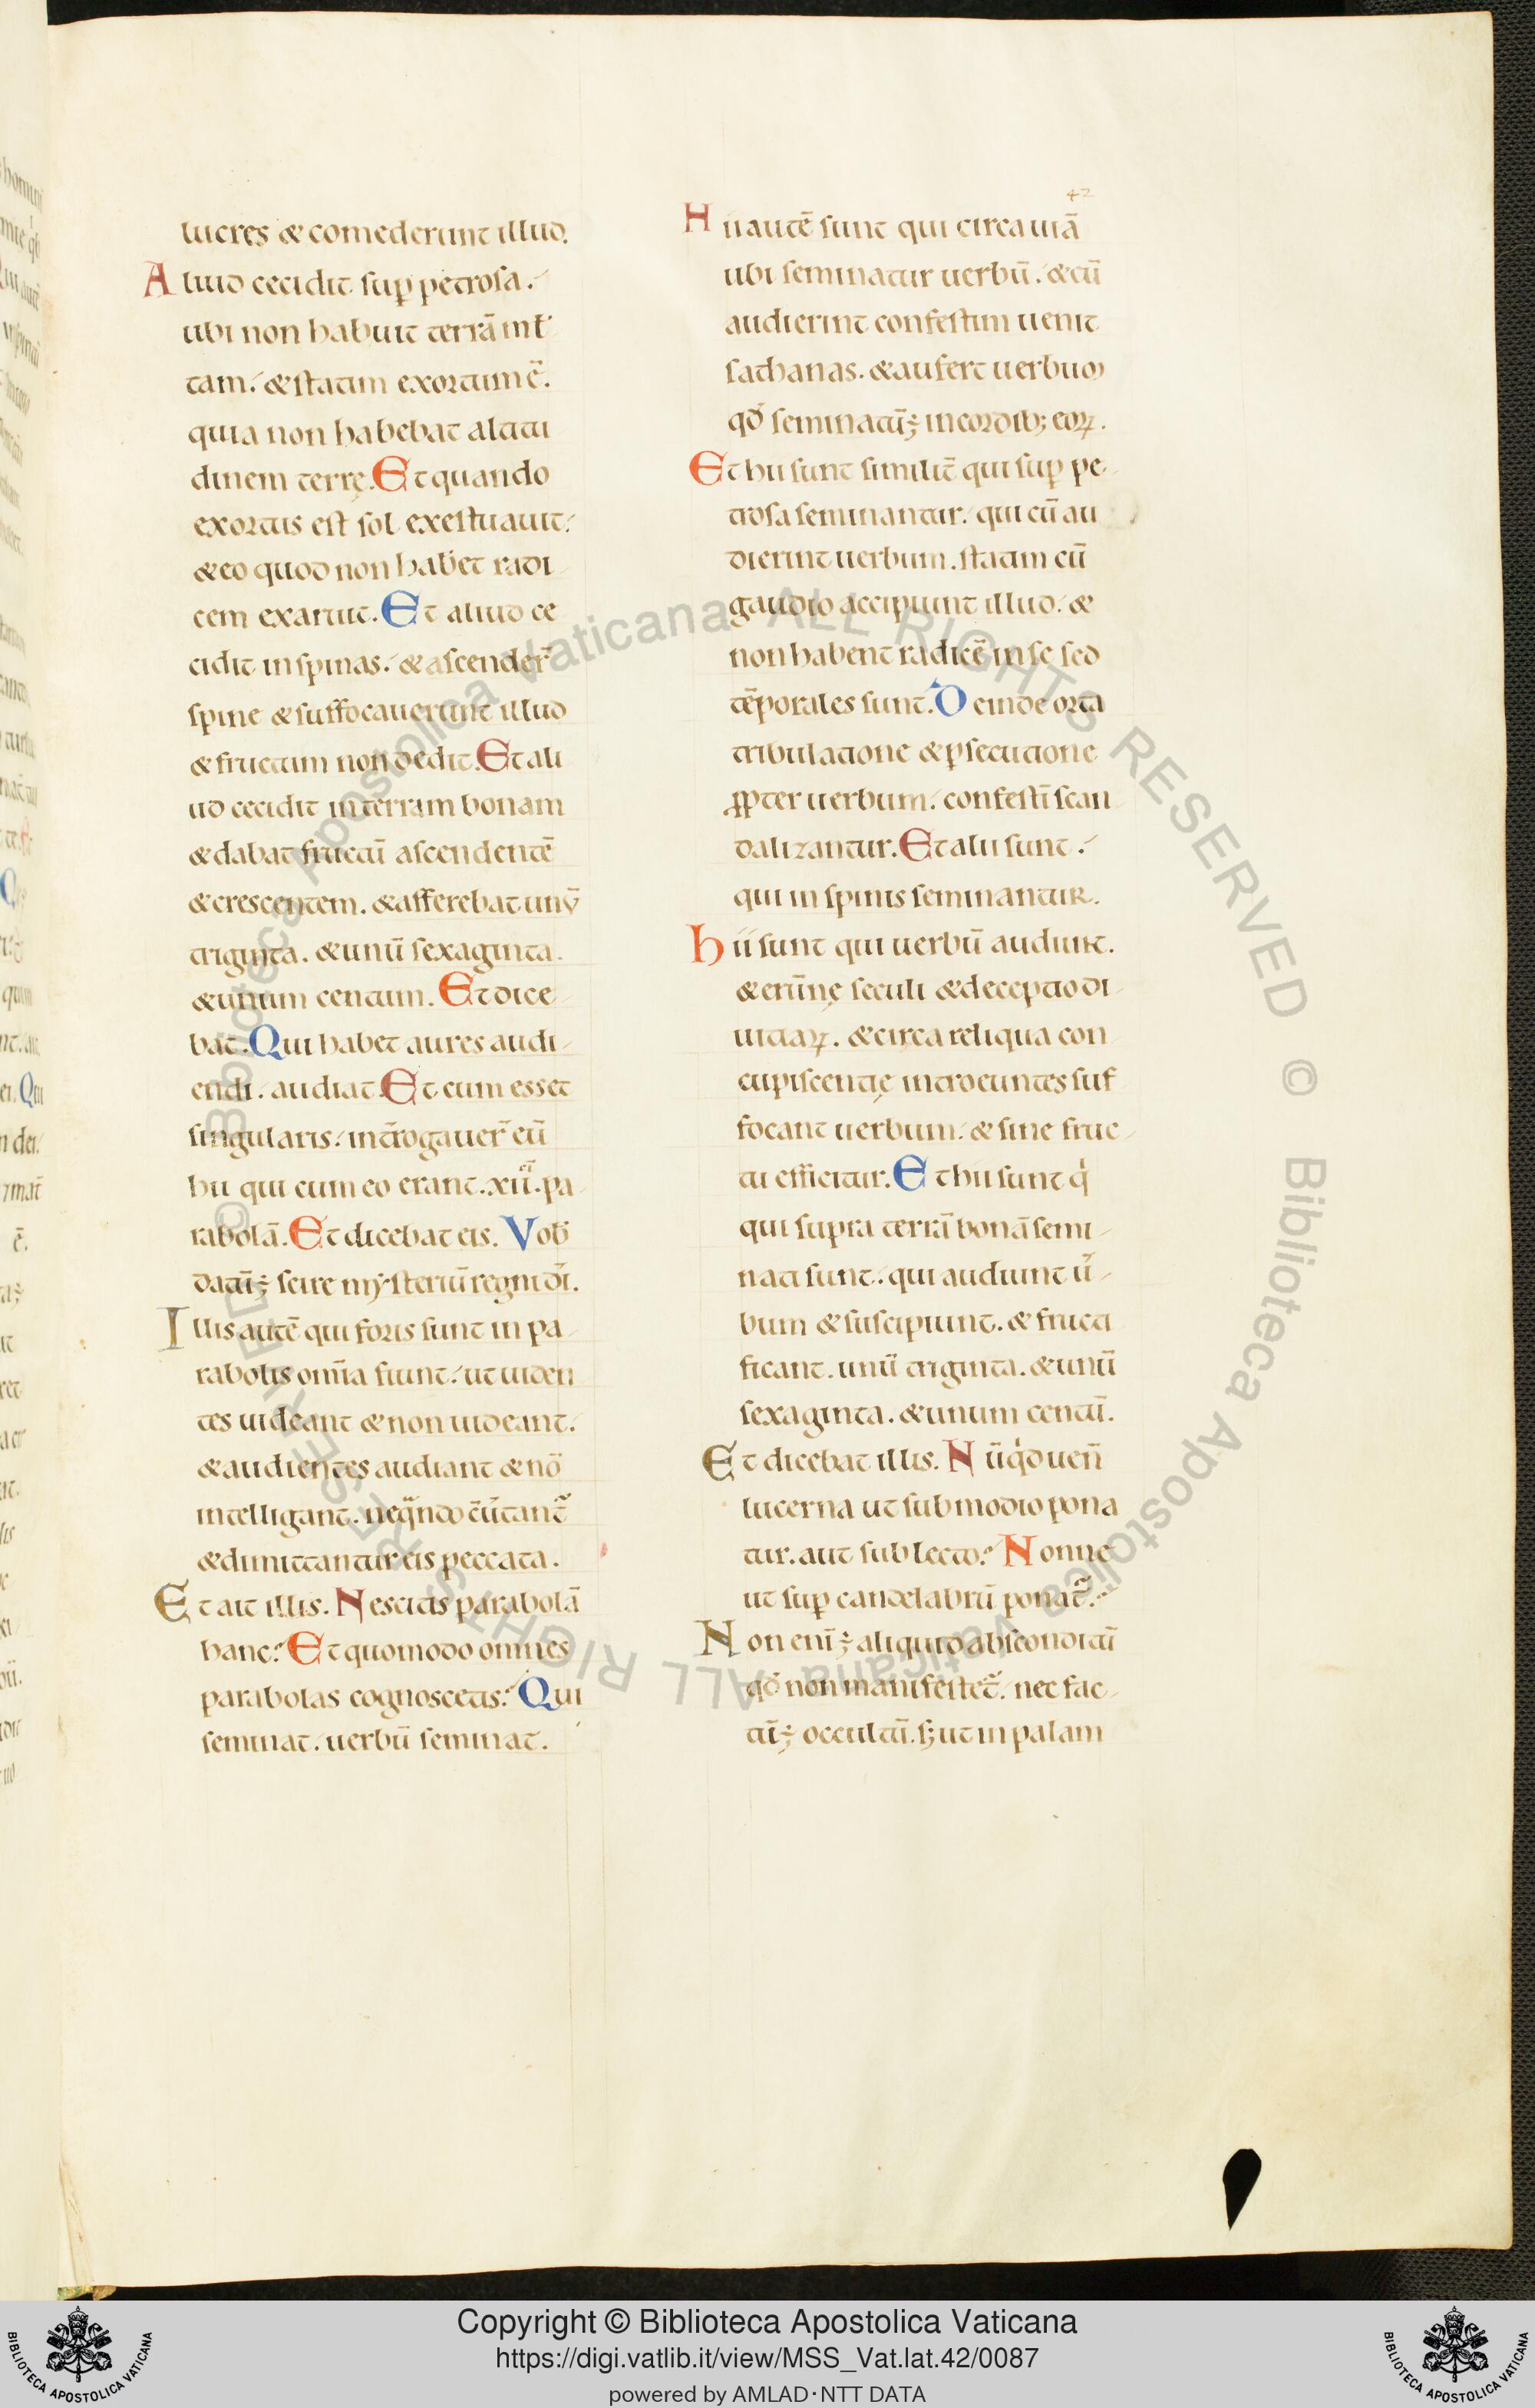 42
lucres & comederunt illud.
Aliud cecidit sup̱ petrosa.
ubi non habuit terrā mł
tam. & statim exortum ē.
quia non habebat altitu
dinem terrę. Et quando
exortus est sol exestuauit.
& eo quod non habet radi
cem exaruit. Et aliud ce
cidit in spinas. & ascender̄
spine & suffocauerunt illud
& fructum non dedit. Et ali
ud cecidit in terram bonam
& dabat fructū ascendentē
& crescentem. & afferebat unū
triginta. & unū sexaginta.
& unum centum. Et dice
bat. Qui habet aures audi
endi. audiat. Et cum esset
singularis. int̄rogauer̄ eū
hii qui cum eo erant. xii. pa
rabolā. Et dicebat eis. Vob
datū ÷ scire mysteriū regni dī.
Illis autē qui foris sunt in pa
rabolis om̄ia fiunt. ut uiden
tes uideant & non uideant.
& audientes audiant & nō
intelligant. neqͣndo c̄ūtant᷑
& dimittantur eis peccata.
Et ait illis. Nescitis parabolā
hanc? Et quomodo omnes
parabolas cognoscetis? Qui
seminat. uerbū seminat.
Hii autē sunt qui circa uiā
ubi seminatur uerbū. & cū
audierint confestim uenit
sathanas. & aufert uerbum
qđ seminatū ÷ in cordib; eoꝝ.
Et hii sunt similit̄ qui sup̱ pe
trosa seminantur. qui cū au
dierint uerbum. statim cū
gaudio accipiunt illud. &
non habent radicē in se sed
tēporales sunt. Deinde orta
tribulatione & ꝑsecutione
ꝓpter uerbum. confestī scan
dalizantur. Et alii sunt.
qui in spinis seminantur.
hii sunt qui uerbū audiunt.
& erūnę seculi & deceptio di
uitiaꝝ. & circa reliqua con
cupiscentię introeuntes suf
focant uerbum. & sine fruc
tu efficitur. Et hii sunt q̇
qui supra terrā bonā semi
nati sunt. qui audiunt ū
bum & suscipiunt. & fructi
ficant. unū triginta. & unū
sexaginta. & unum centū.
Et dicebat illis. Nūqͥd uen̄
lucerna ut sub modio pona
tur. aut sub lecto? Nonne
ut sup̱ candelabrū ponat᷑?
Non enī ÷ aliquid absconditū
qđ non manifestet᷑. nec fac
tū ÷ occultū. ꝫ ut in palam
Copyright © Biblioteca Apostolica Vaticana
https://digi.vatlib.it/view/MSS_Vat.lat.42/0087
powered by AMLAD·NTT DATA